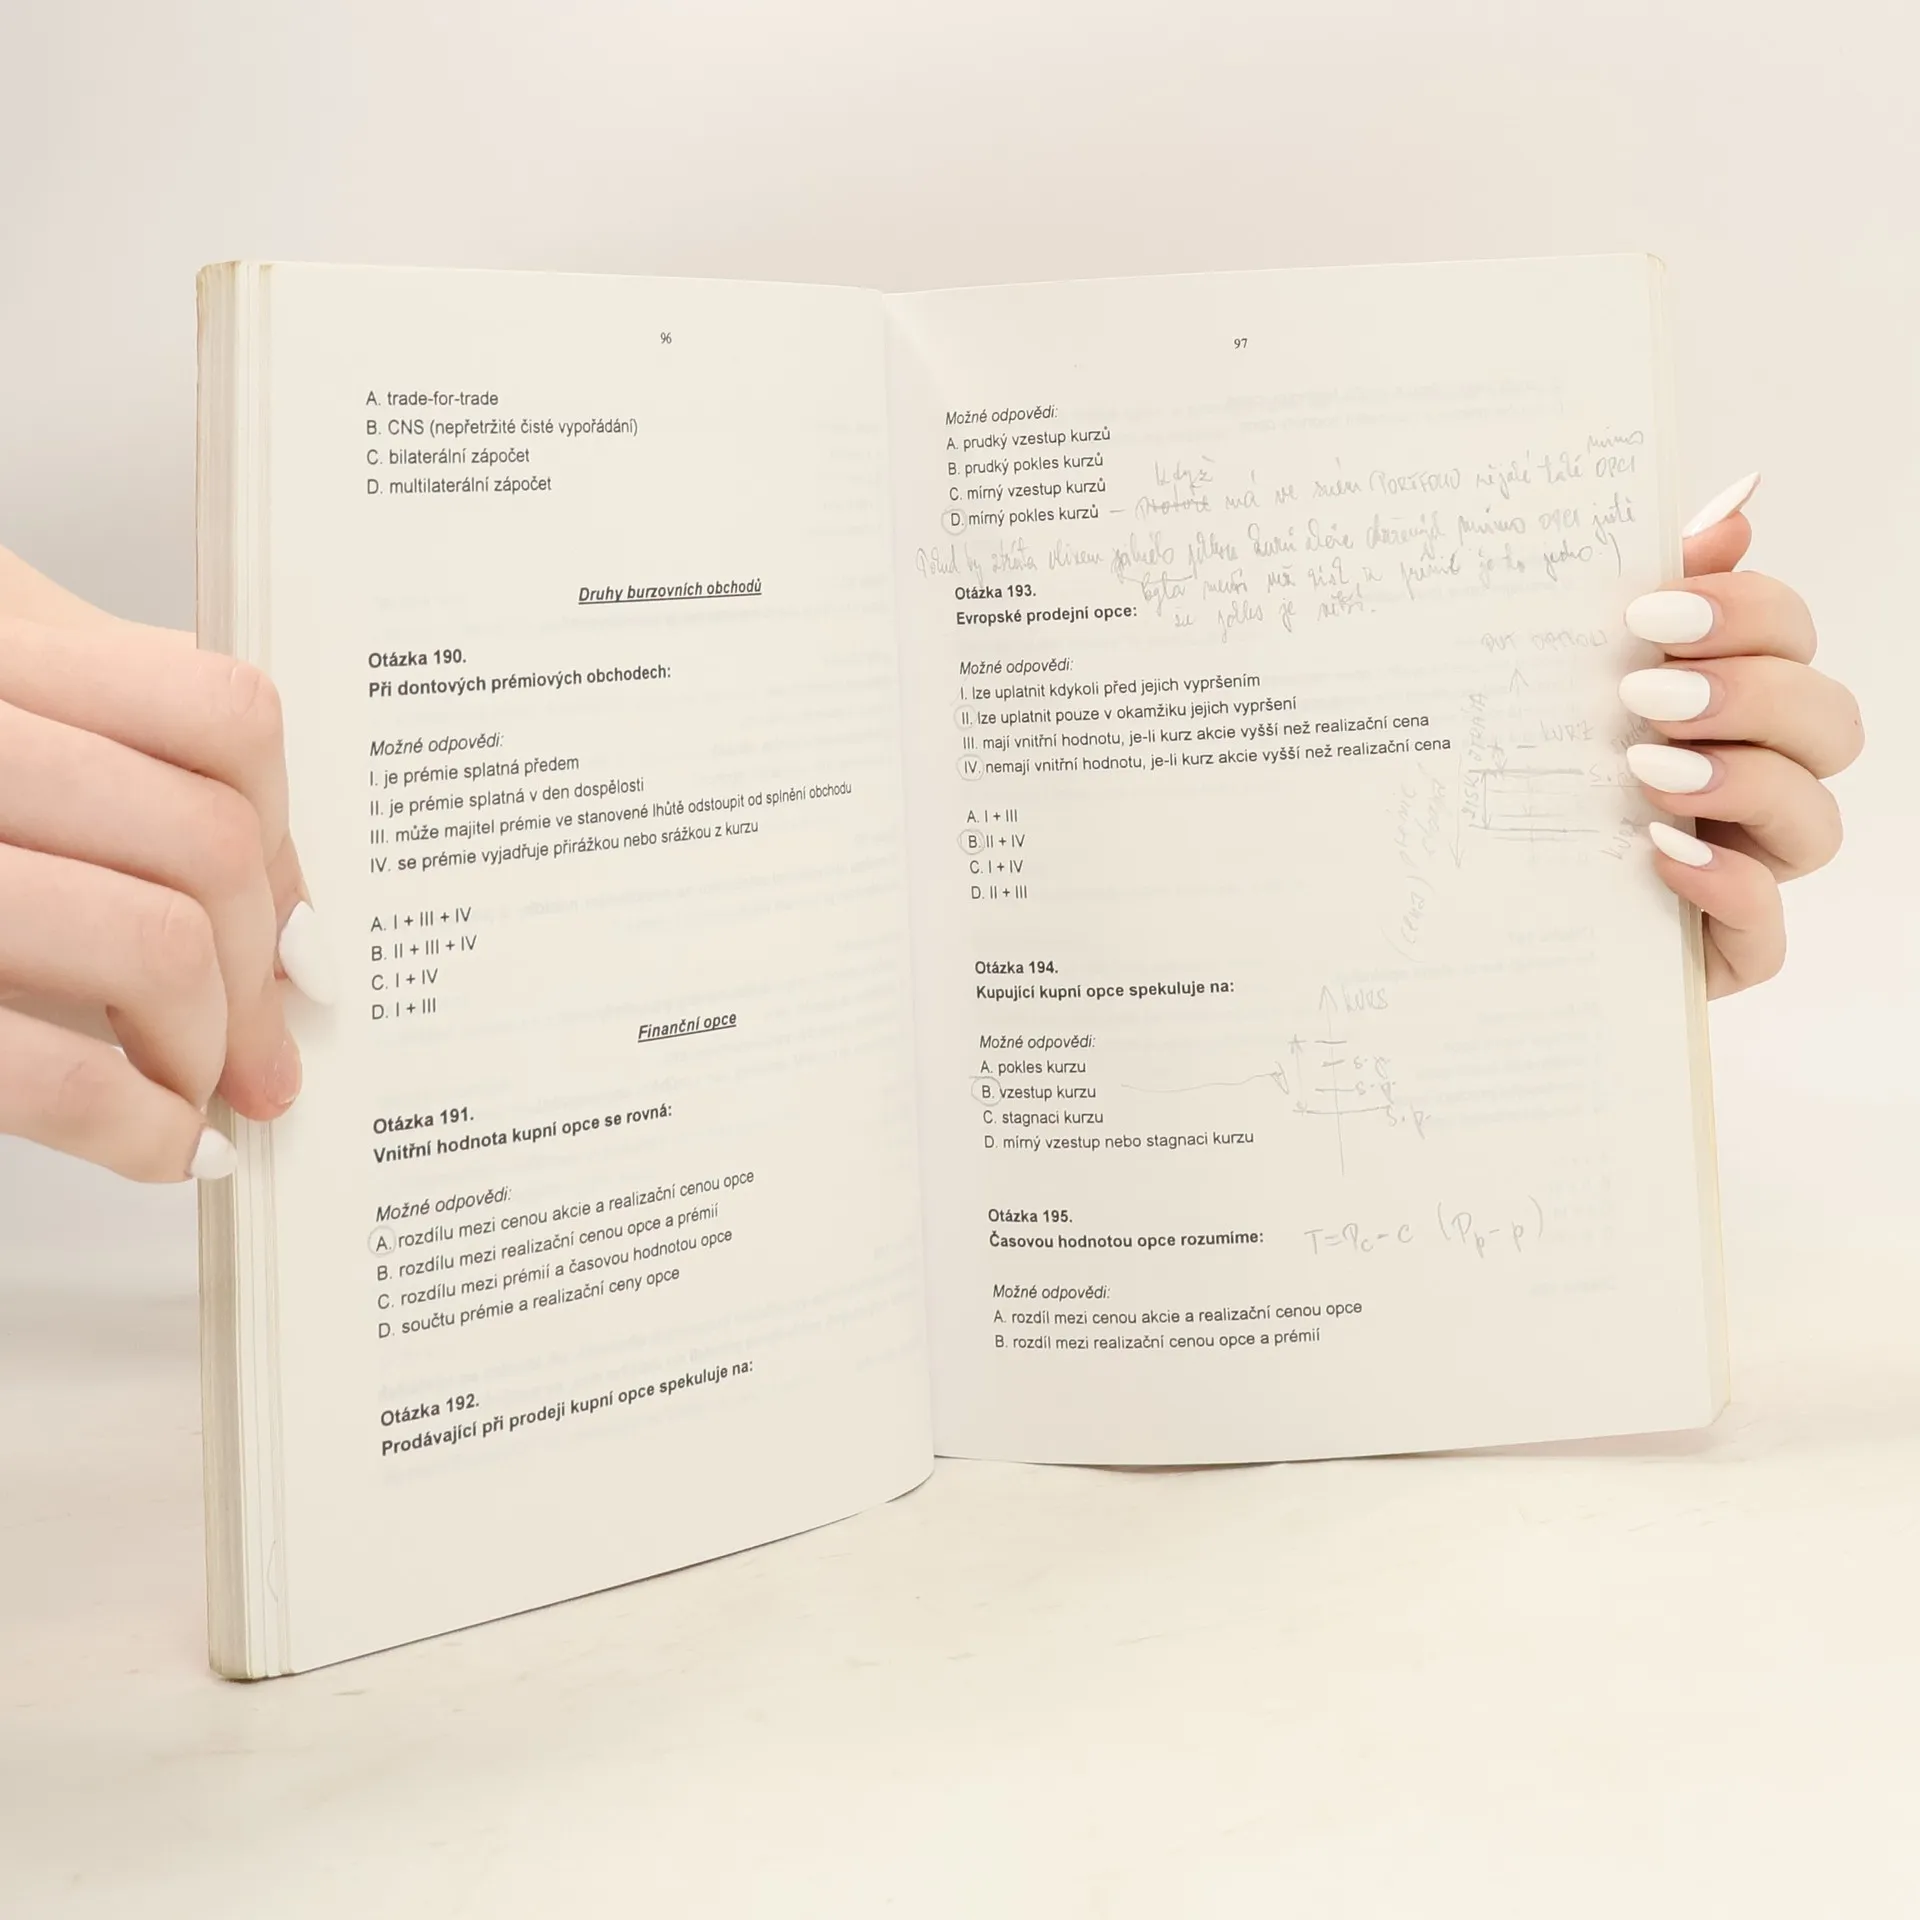 96
A. trade-for-trade
B. CNS (nepřetržité čisté vypořádání)
C. bilaterální zápočet
D. multilaterální zápočet
Druhy burzovních obchodů
Otázka 190.
Při dontových prémiových obchodech:
Možné odpovědi:
I. je prémie splatná předem
II. je prémie splatná v den dospělosti
III. může majitel prémie ve stanovené lhůtě odstoupit od splnění obchodu
IV. se prémie vyjadřuje přirážkou nebo srážkou z kurzu
A. I + III + IV
B. II + III + IV
C. I + IV
D. I + III
Finanční opce
Otázka 191.
Vnitřní hodnota kupní opce se rovná:
Možné odpovědi:
A. rozdílu mezi cenou akcie a realizační cenou opce
B. rozdílu mezi realizační cenou opce a prémií
C. rozdílu mezi prémií a časovou hodnotou opce
D. součtu prémie a realizační ceny opce
Otázka 192.
Prodávající při prodeji kupní opce spekuluje na:
97
Možné odpovědi:
A. prudký vzestup kurzů
B. prudký pokles kurzů
C. mírný vzestup kurzů
D. mírný pokles kurzů
Když
má ve svém PORTFOLIU OPCI
mimo
Otázka 193.
Evropské prodejní opce:
Možné odpovědi:
I. lze uplatnit kdykoli před jejich vypršením
II. lze uplatnit pouze v okamžiku jejich vypršení
III. mají vnitřní hodnotu, je-li kurz akcie vyšší než realizační cena
IV. nemají vnitřní hodnotu, je-li kurz akcie vyšší než realizační cena
A. I + III
B. II + IV
C. I + IV
D. II + III
Otázka 194.
Kupující kupní opce spekuluje na:
Možné odpovědi:
A. pokles kurzu
B. vzestup kurzu
C. stagnaci kurzu
D. mírný vzestup nebo stagnaci kurzu
Otázka 195.
Časovou hodnotou opce rozumíme: T=Pc-c (Pp-p)
Možné odpovědi:
A. rozdíl mezi cenou akcie a realizační cenou opce
B. rozdíl mezi realizační cenou opce a prémií